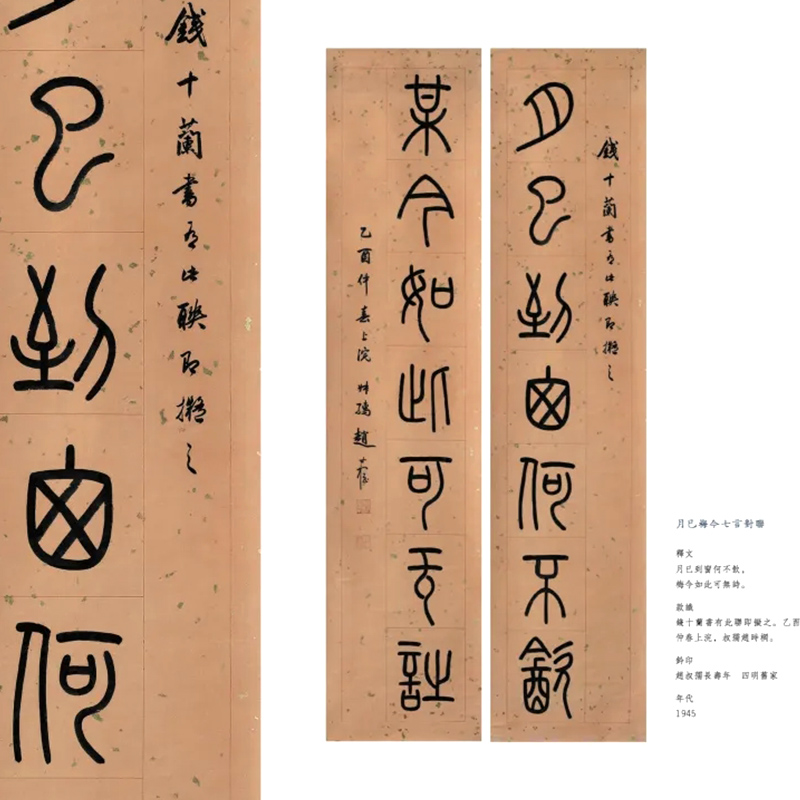 錢十蘭書有此聯即擬之
已到囱何
錢十蘭書有此聯即擬之
月已到囱何不飲
某今如此可无詩
乙酉仲春上浣 叔孺趙時棡
月已梅今七言對聯
釋文
月已到窗何不飲，
梅今如此可無詩。
款識
錢十蘭書有此聯即擬之。乙酉
仲春上浣，叔孺趙時棡。
鈐印
趙叔孺長壽年 四明舊家
年代
1945